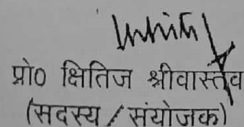 प्रो0 क्षितिज श्रीवास्तव
(सदस्य / संयोजक)